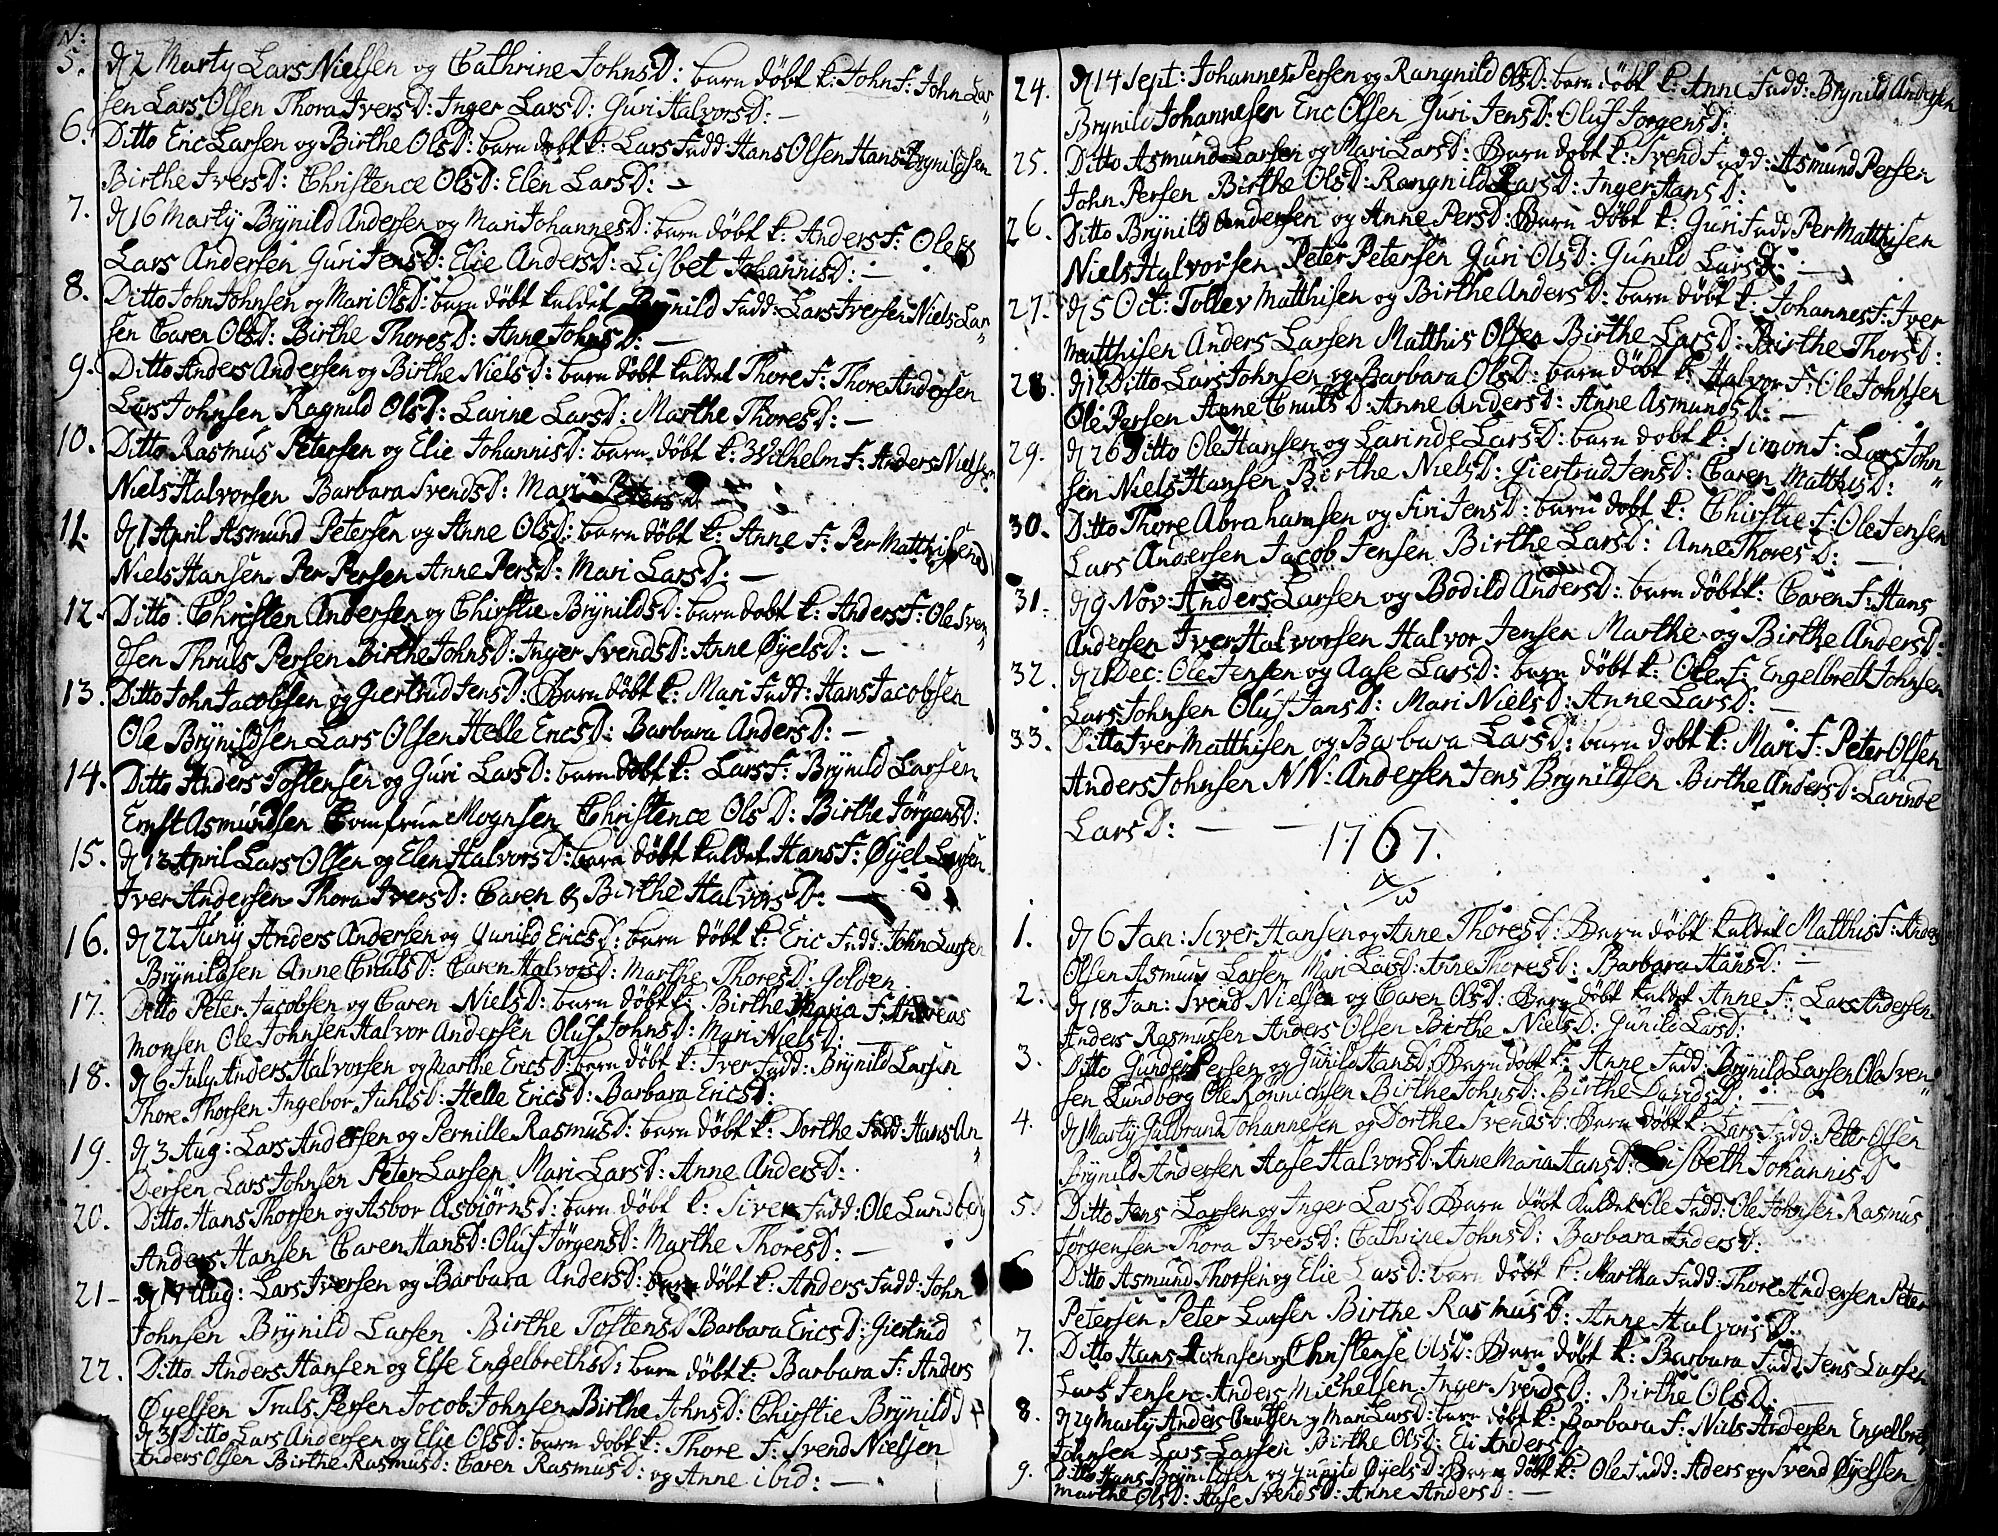 N:
5. d 2 Marty Lars Nielsen og Cathrine JohnsD: barn döbt k: John F: John Lar„
sen Lars Olsen Thora IversD: Inger LarsD: Guri HalvorsD: —
6. Ditto Eric Larsen og Birthe OlsD: barn döbt k: Lars Fadd Hans Olsen Hans Brynildsen
Birthe IversD: Christence OlsD: Elen LarsD: —
7. d 16 Marty Brynild Andersen og Mari JohannesD: barn döbt k: Anders F: Ole
Lars Andersen Guri JensD: Elie AndersD: Lisbet JohannisD: —
8. Ditto John Johnsen og Mari OlsD: barn döbt kaldet Brynild Fadd: Lars Iversen Niels Lar„
sen Caren OlsD: Birthe ThoresD: Anne JohnsD: —
9. Ditto Anders Andersen og Birthe NielsD: barn döbt kaldet Thore F: Thore Andersen
Lars Johnsen Ragnild OlsD: Larine LarsD: Marthe ThoresD: —
10. Ditto Rasmus Petersen og Elie JohannisD: barn döbt k: Wilhelm F: Anders Nielsen
Niels Halvorsen Barbara SvendsD: Mari PetersD —
11. d 1 April Asmund Petersen og Anne OlsD: barn döbt k: Anne F: Per Matthisen
Niels Hansen Per Persen Anne PersD: Mari LarsD: —
12. Ditto Christen Andersen og Chirstie BrynildsD: barn döbt k: Anders F: Ole Sven„
dsen Thruls Persen Birthe JohnsD: Inger SvendsD: Anne ØyelsD: —
13. Ditto John Jacobsen og Giertrud JensD: Barn döbt k: Mari Fadd: Hans Jacobsen
Ole Brynildsen Lars Olsen Helle EricsD: Barbara AndersD: —
14. Ditto Anders Tostensen og Guri LarsD: barn döbt k: Lars F: Brynild Larsen
Ernst Asmundsen Comfrue Mognsen Christence OlsD: Birthe JörgensD:
15. d 13 April Lars Olsen og Elen HalvorsD: barn döbt kaldet Hans F: Øyel Larsen
Iver Andersen Thora IversD: Caren & Birthe HalvorsD: —
16. d 22 Juny Anders Andersen og Gunild EricsD: barn döbt k: Eric Fadd: John Larsen
Brynildsen Anne CnutsD: Caren HalvorsD: Marthe ThoresD: Golden
17. Ditto Peter Jacobsen og Caren NielsD: barn döbt k: Birthe Maria F: Andreas
Monsen Ole Johnsen Halvor Andersen Oluf JohnsD: Mari NielsD: —
18. d 6 July Anders Halvorsen og Marthe EricsD: barn döbt k: Iver Fadd: Brynild Larsen
Thore Thorsen Ingebor JuhlsD: Helle EricsD: Barbara EricsD:
19. d 3 Aug: Lars Andersen og Pernille RasmusD: barn döbt k: Dorthe Fadd: Hans An„
dersen Lars Johnsen Peter Larsen Mari LarsD: Anne AndersD:
20. Ditto Hans Thorsen og Asbor AsbiörnsD: barn döbt k: Siver Fadd: Ole Lundberg
Anders Hansen Caren HansD: Oluf JörgensD: Marthe ThoresD: —
21 - d 17 Aug: Lars Iversen og Barbara AndersD: barn döbt k: Anders Fadd: John
Johnsen Brynild Larsen Birthe TostensD Barbara EricsD: Giertrud
22. Ditto Anders Hansen og Else EngelbrethsD: barn döbt k: Barbara F: Anders
Øyelsen Truls Persen Jocob Johnsen Birthe JohnsD: Chirstie BrynildsD
d 31 Ditto Lars Andersen og Elie OlsD: barn döbt k: Thore F: Svend Nielsen
Anders Olsen Birthe RasmusD: Caren RasmusD: og Anne ibid: —
24. d 14 Sept: Johannes Persen og Rangnild OlsD: barn döbt k: Anne Fadd: Brynild Andersen
Brynild Johannesen Eric Olsen Guri JensD: Oluf JorgensD:
25. Ditto Asmund Larsen og Mari LarsD: Barn döbt k: Svend Fadd: Asmund Persen
John Persen Birthe OlsD: Rangnild LarsD: Inger HansD:
26. Ditto Brynild Andersen og Anne PersD: Barn döbt k: Guri Fadd Per Matthisen
Niels Halvorsen Peter Petersen Guri OlsD: Gunild LarsD: —
27. d 5 Oct: Tollev Matthisen og Birthe AndersD: barn döbt k: Johannes F: Iver
Matthisen Anders Larsen Matthis Olsen Birthe LarsD: Birthe ThorsD:
28. d 12 Ditto Lars Johnsen og Barbara OlsD: barn döbt k: Halvor F: Ole Johnsen
Ole Persen Anne CnutsD: Anne AndersD: Anne AsmundsD: —
29. d 26 Ditto Ole Hansen og Larinde LarsD: barn dobt k: Simon F: Lars John„
sen Niels Hansen Birthe NielsD: Giertrud JensD: Caren MatthisD:
30. Ditto Thore Abrahamsen og Siri JensD: barn döbt k: Chirstie F: Ole Jensen
Lars Andersen Jacob Jensen Birthe LarsD: Anne ThoresD: —
31. d 9 Nov: Anders Larsen og Bodild AndersD: barn döbt k: Caren F: Hans
Andersen Iver Halvorsen Halvor Jensen Marthe og Birthe AndersD:
32. d 21 Dec: Ole Jensen og Aase LarsD: barn döbt k: Ole F: Engelbreth Johnsen
Lars Johnsen Oluf JansD: Mari NielsD: Anne LarsD: —
33. Ditto Iver Matthisen og Barbara LarsD: barn döbt k: Mari F: Peter Olsen
Anders Johnsen NN: Andersen Jens Brynildsen Birthe AndersD: Larinde
LarsD: — —
1767.
1. d 6 Jan: Siver Hansen og Anne ThoresD: Barn döbt kaldet Matthis F: Anders
Olsen Asmund Larsen Mari LarsD: Anne ThoresD: Barbara HansD: —
2. d 18 Jan: Svend Nielsen og Caren OlsD: Barn döbt kaldet Anne F: Lars Andersen
Anders Rasmussen Anders Olsen Birthe NielsD: Gunild LarsD:
3. Ditto Gunder Persen og Gunild HansD: Barn döbt k: Anne Fadd: Brynild Larsen Ole Sven„
sen Lundberg Ole Ronnichsen Birthe JohnsD: Birthe DavidsD: —
4. d 1 Marty Gulbrand Johannesen og Dorthe SvendsD: Barn döbt k: Lars Fadd: Peter Olsen
Brynild Andersen Aase HalvorsD: Anne Maria HansD: Lisbeth JohannisD
5. Ditto Jens Larsen og Inger LarsD Barn döbt kaldet Ole Fadd: Ole Johnsen Rasmus
Jörgensen Thora IversD: Cathrine JohnsD: Barbara AndersD:
6 Ditto Asmund Thorsen og Elie LarsD: barn döbt k: Martha Fadd: Thore Andersen Peter
Petersen Peter Larsen Birthe RasmusD: Anne HalvorsD.
7. Ditto Hans Johnsen og Christense OlsD: Barn döbt k: Barbara Fadd Jens Larsen
Lars Jensen Anders Michelsen Inger SvendsD: Birthe OlsD:
8. d 29 Marty Anders Cnutsen og Mari LarsD: barn döbt k: Barbara F: Niels Andersen Engelbret
Johnsen Lars Larsen Birthe OlsD: Eli AndersD
9. Ditto Hans Brynildsen og Gunild ØyelsD: Barn döbt k: Ole Fadd: Aders og Svend Øyelsen
Marthe OlsD: Aase SvendsD: Anne AndersD: —